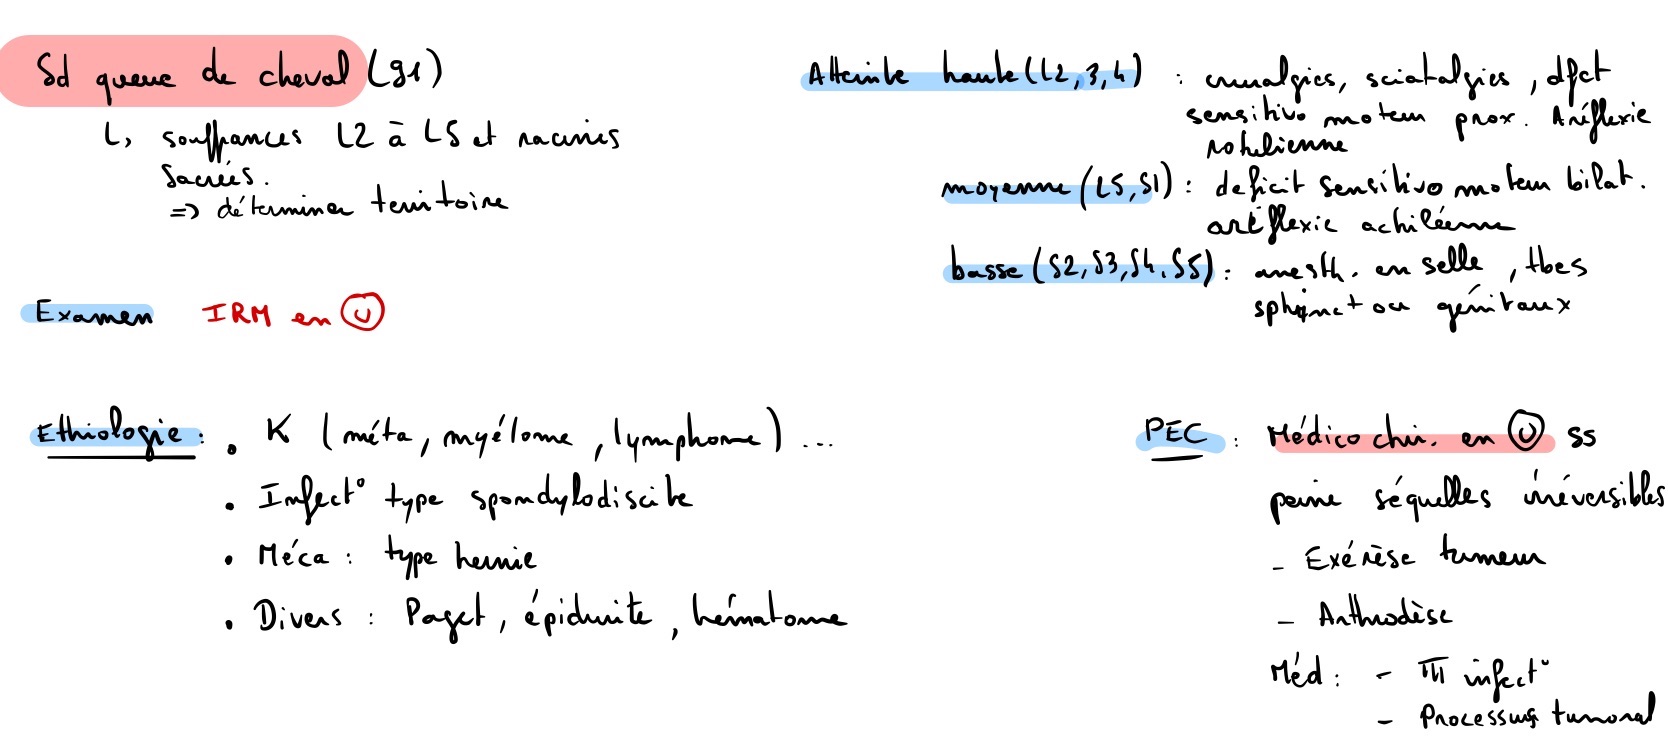 Sd queue de cheval (91)
↳ souffrances L2 à L5 et racines
sacrées.
=> déterminer territoire
Atteinte haute (L2,3,4) : cruralgies, sciatalgies, dfct
sensitivo moteur prox. Aréflexie
rotulienne
moyenne (L5,S1) : deficit sensitivo moteur bilat.
aréflexie achiléenne
basse (S2,S3,S4,S5) : anesth. en selle, tbes
sphinct ou génitaux
Examen IRM en U
Ethiologie : • K (méta, myélome, lymphome) ...
• Infect° type spondylodiscite
• Méca : type hernie
• Divers : Paget, épidurite, hématome
PEC : Médico chir. en U ss
peine séquelles irréversibles
- Exérèse tumeur
- Arthrodèse
Méd : - TTT infect°
- Processus tumoral